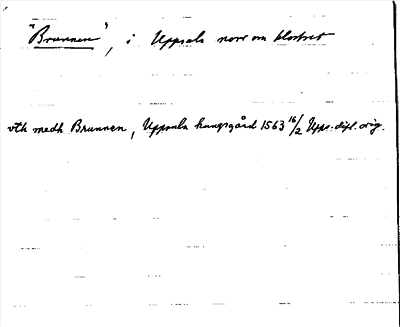 "Brunnen", i Uppsala norr om klostret
vth medh Brunnen, Uppsala kungsgård 1563 16/2 Upps. dipl. orig.